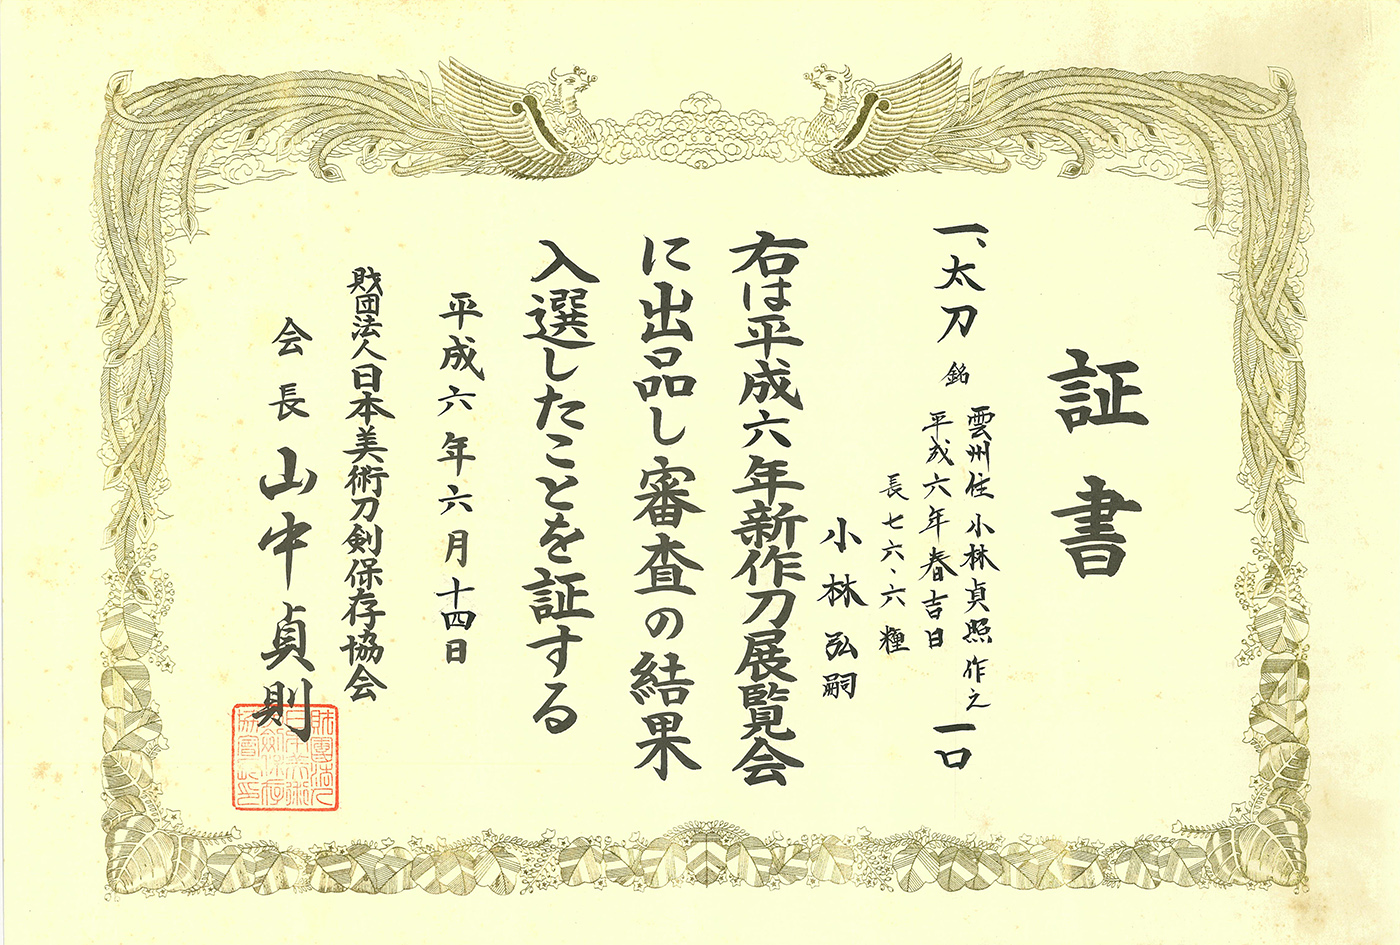 証書
一、太刀 銘 雲州住小林貞照作之 一口
平成六年春吉日
長七六・六糎
小林弘嗣
右は平成六年新作刀展覧会
に出品し審査の結果
入選したことを証する
平成六年六月十四日
財団法人日本美術刀剣保存協会
会長 山中貞則